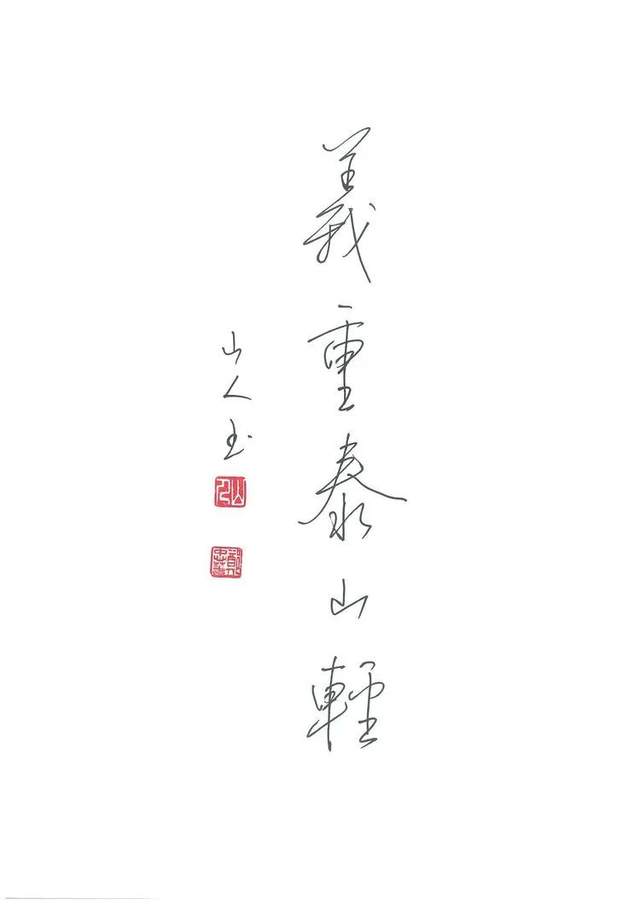 義重泰山輕
山人书
山人